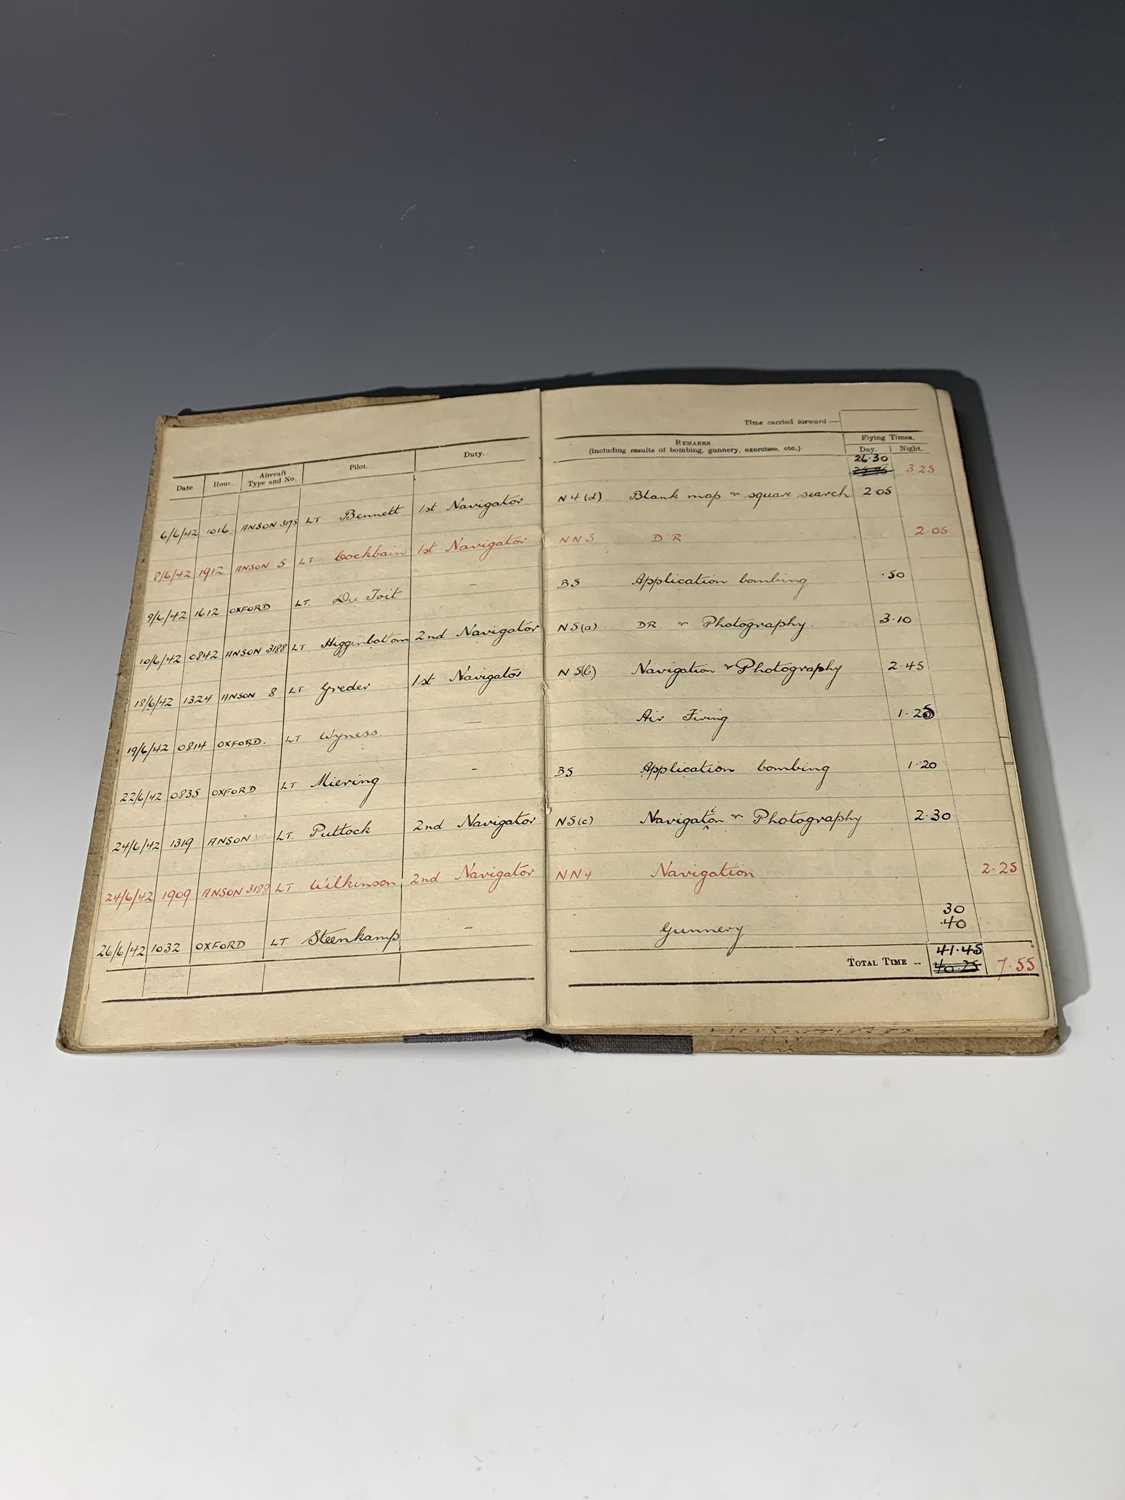 Time carried forward :—
Date. Hour. Aircraft Type and No. Pilot. Duty. REMARKS (including results of bombing, gunnery, exercises, etc.) Flying Times. Day. Night.
26.30 3.25
6/6/42 1016 ANSON LT Bennett 1st Navigator N4(d) Blank map & square search 2.05
8/6/42 1912 ANSON S LT Cockbain 1st Navigator NN3 DR 2.05
9/6/42 1612 OXFORD LT. Du Toit – BS Application bombing .50
10/6/42 0842 ANSON 3188 LT Higginbotom 2nd Navigator N5(a) DR & Photography. 3.10
18/6/42 1324 ANSON 8 LT Greder 1st Navigator N5(b) Navigation & Photography 2.45
19/6/42 0814 OXFORD. LT Wyness – Air Firing 1.25
22/6/42 0835 OXFORD LT Miering – BS Application bombing 1.20
24/6/42 1319 ANSON LT. Puttock 2nd Navigator N5(c) Navigation & Photography 2.30
24/6/42 1909 ANSON 3188 LT Wilkinson 2nd Navigator NN4 Navigation 2.25
30
26/6/42 1032 OXFORD LT Steenkamp – Gunnery .40
41.45
TOTAL TIME .. 40.25 7.55